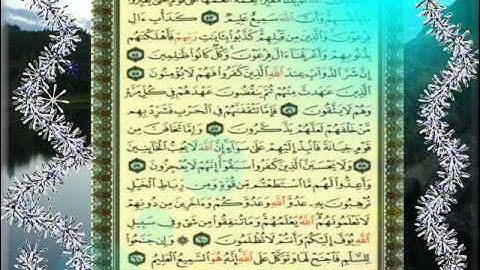 مَا بِأَنفُسِهِمْ وَأَنَّ ٱللَّهَ سَمِيعٌ عَلِيمٌ ٥٣ كَدَأْبِ ءَالِ
فِرْعَوْنَ وَٱلَّذِينَ مِن قَبْلِهِمْ كَذَّبُوا۟ بِـَٔايَـٰتِ رَبِّهِمْ فَأَهْلَكْنَـٰهُم
بِذُنُوبِهِمْ وَأَغْرَقْنَآ ءَالَ فِرْعَوْنَ وَكُلٌّ كَانُوا۟ ظَـٰلِمِينَ ٥٤
إِنَّ شَرَّ ٱلدَّوَآبِّ عِندَ ٱللَّهِ ٱلَّذِينَ كَفَرُوا۟ فَهُمْ لَا يُؤْمِنُونَ ٥٥
ٱلَّذِينَ عَـٰهَدتَّ مِنْهُمْ ثُمَّ يَنقُضُونَ عَهْدَهُمْ فِى كُلِّ مَرَّةٍ
وَهُمْ لَا يَتَّقُونَ ٥٦ فَإِمَّا تَثْقَفَنَّهُمْ فِى ٱلْحَرْبِ فَشَرِّدْ بِهِم
مَّنْ خَلْفَهُمْ لَعَلَّهُمْ يَذَّكَّرُونَ ٥٧ وَإِمَّا تَخَافَنَّ مِن
قَوْمٍ خِيَانَةً فَٱنۢبِذْ إِلَيْهِمْ عَلَىٰ سَوَآءٍ إِنَّ ٱللَّهَ لَا يُحِبُّ ٱلْخَآئِنِينَ
٥٨ وَلَا يَحْسَبَنَّ ٱلَّذِينَ كَفَرُوا۟ سَبَقُوٓا۟ إِنَّهُمْ لَا يُعْجِزُونَ ٥٩
وَأَعِدُّوا۟ لَهُم مَّا ٱسْتَطَعْتُم مِّن قُوَّةٍ وَمِن رِّبَاطِ ٱلْخَيْلِ
تُرْهِبُونَ بِهِۦ عَدُوَّ ٱللَّهِ وَعَدُوَّكُمْ وَءَاخَرِينَ مِن دُونِهِمْ
لَا تَعْلَمُونَهُمُ ٱللَّهُ يَعْلَمُهُمْ وَمَا تُنفِقُوا۟ مِن شَىْءٍ فِى سَبِيلِ
ٱللَّهِ يُوَفَّ إِلَيْكُمْ وَأَنتُمْ لَا تُظْلَمُونَ ٦٠ وَإِن جَنَحُوا۟
لِلسَّلْمِ فَٱجْنَحْ لَهَا وَتَوَكَّلْ عَلَى ٱللَّهِ إِنَّهُۥ هُوَ ٱلسَّمِيعُ ٱلْعَلِيمُ ٦١